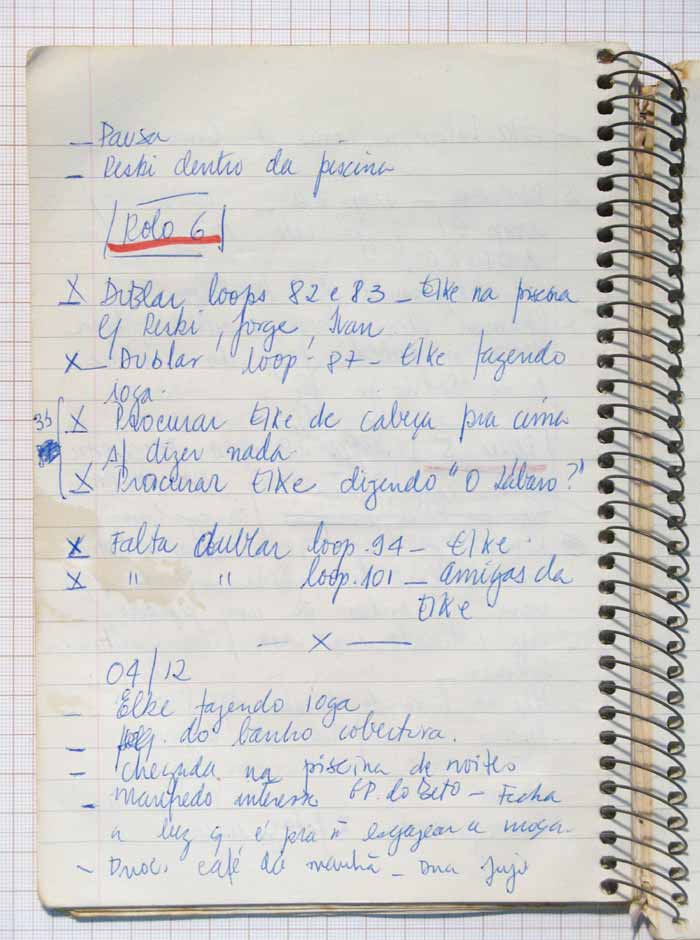 - Pausa
- Reski dentro da piscina
Rolo 6
X Dublar loops 82 e 83 - Elke na piscina
c/ Reski, Jorge, Ivan
X - Dublar loop - 87 - Elke fazendo
ioga.
X Procurar Elke de cabeça pra cima
s/ dizer nada
X Procurar Elke dizendo "O Lábaro?"
X Falta dublar loop. 94 - Elke.
X " " loop. 101 - Amigas da
Elke
— X —
04/12
- Elke fazendo ioga
- do banho cobertura.
- Chegada na piscina de noite
- Manfredo AP. do Beto - Fecha
a luz q. é pra ñ a moça
- café da manhã - Dna Juju